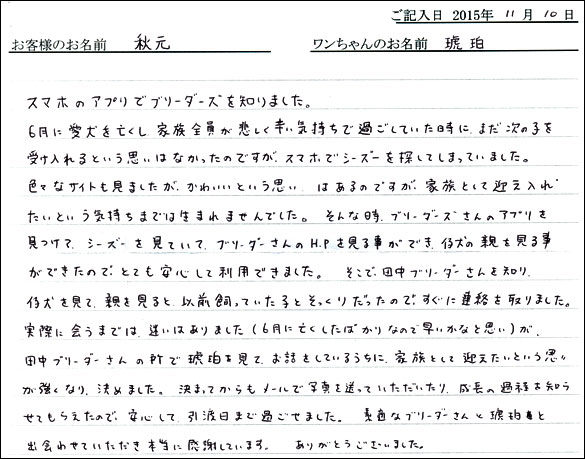 ご記入日 2015年 11月 10日
お客様のお名前 秋元 ワンちゃんのお名前 琥珀
スマホのアプリでブリーダーズを知りました。
6月に愛犬を亡くし 家族全員が悲しく辛い気持ちで過ごしていた時に、まだ次の子を
受け入れるという思いはなかったのですが、スマホでシーズーを探してしまっていました。
色々なサイトも見ましたが、かわいいという思い、はあるのですが、家族として迎え入れ
たいという気持ちまでは生まれませんでした。 そんな時、ブリーダーズさんのアプリを
見つけて、シーズーを見ていて、ブリーダーさんのH.Pを見る事ができ、仔犬の親を見る事
ができたので、とても安心して利用できました。 そこで、田中ブリーダーさんを知り、
仔犬を見て、親を見ると、以前飼っていた子とそっくりだったので、すぐに連絡を取りました。
実際に会うまでは、迷いはありました（6月に亡くしたばかりなので早いかなと思い）が、
田中ブリーダーさんの所で琥珀を見て、お話をしているうちに、家族として迎えたいという思い
が強くなり、決めました。 決まってからもメールで写真を送っていただいたり、成長の過程を知ら
せてもらえたので、安心して、引渡日まで過ごせました。 素適なブリーダーさんと琥珀と
出会わせていただき本当に感謝しています。 ありがとうございました。